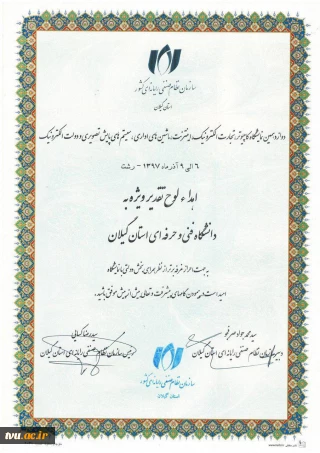 سازمان نظام صنفی رایانه‌ای کشور
استان گیلان
دوازدهمین نمایشگاه کامپیوتر، تجارت الکترونیک، اینترنت، ماشین های اداری، سیستم های پایش تصویری و دولت الکترونیک
۶ الی ۹ آذر ماه ۱۳۹۷ - رشت
اهداء لوح تقدیر ویژه به
دانشگاه فنی و حرفه ای استان گیلان
به جهت احراز غرفه برتر از نظر اجرای بخش دولتی نمایشگاه
امید است در پیمودن گامهای پیشرفت و تعالی بیش از پیش موفق باشید.
سید محمد جواد صرفجو
سید رضا کیائی
دبیر سازمان نظام صنفی رایانه ای استان گیلان
رئیس سازمان نظام صنفی رایانه ای استان گیلان
سازمان نظام صنفی رایانه‌ای کشور
استان گیلان
tvu.ac.ir